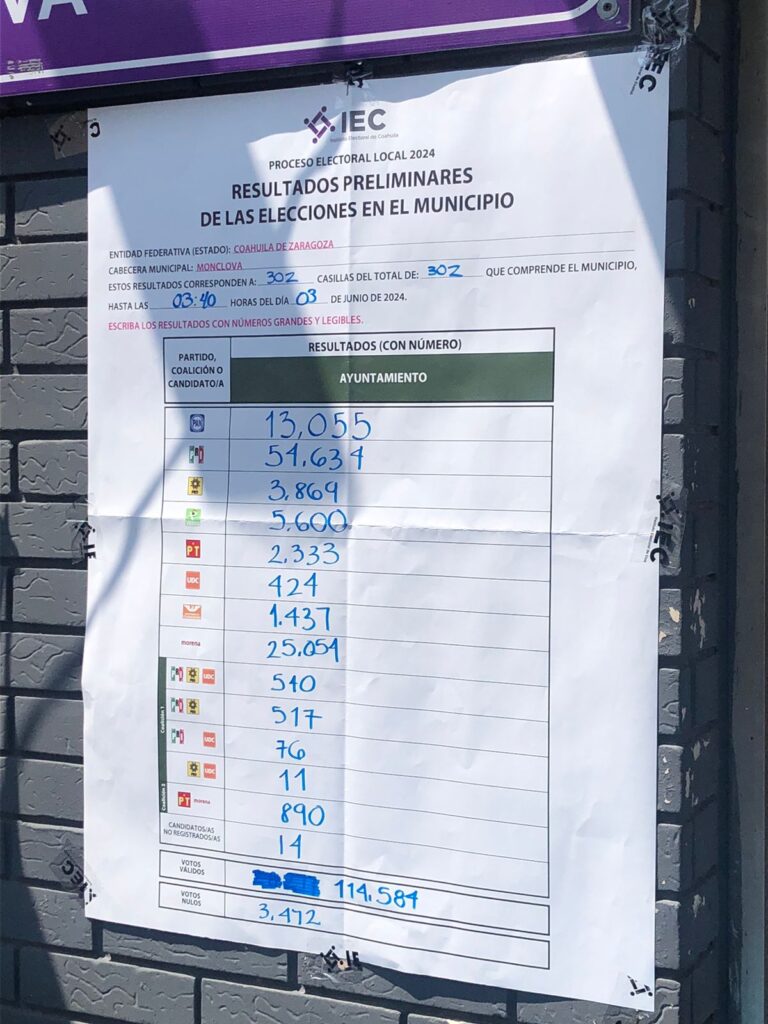 VA
IEC
Instituto Electoral de Coahuila
PROCESO ELECTORAL LOCAL 2024
RESULTADOS PRELIMINARES
DE LAS ELECCIONES EN EL MUNICIPIO
ENTIDAD FEDERATIVA (ESTADO): COAHUILA DE ZARAGOZA
CABECERA MUNICIPAL: MONCLOVA
ESTOS RESULTADOS CORRESPONDEN A: 302 CASILLAS DEL TOTAL DE: 302 QUE COMPRENDE EL MUNICIPIO,
HASTA LAS 03:40 HORAS DEL DÍA 03 DE JUNIO DE 2024.
ESCRIBA LOS RESULTADOS CON NÚMEROS GRANDES Y LEGIBLES.
PARTIDO, COALICIÓN O CANDIDATO/A
RESULTADOS (CON NÚMERO)
AYUNTAMIENTO
PAN 13,055
PRI 54.634
PRD 3,869
5.600
PT 2,333
UDC 424
1.437
morena 25.054
Coalición 1
PRI PRD UDC 540
PRI PRD 517
PRI UDC 76
PRD UDC 11
Coalición 2
PT morena 890
CANDIDATOS/AS NO REGISTRADOS/AS 14
VOTOS VÁLIDOS 114.584
VOTOS NULOS 3,472
IEC
IEC